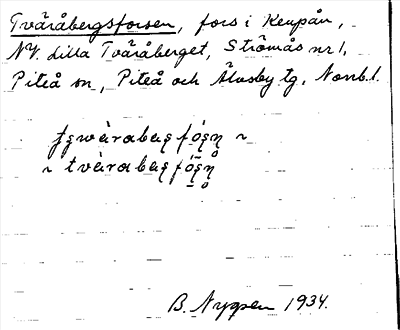 Tväråbergsforsen, fors i Keupån,
NV. Lilla Tväråberget, Strömås nr 1,
Piteå sn, Piteå och Älvsby tg, Norrb. l.
~ tvàrabaʂfó̄ʂn̥
B. Nygren 1934.